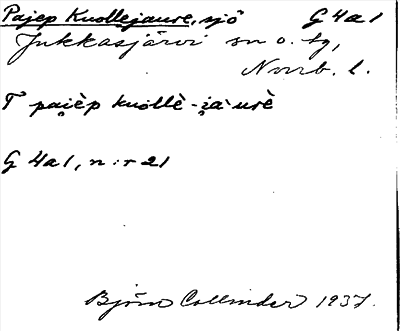 Pajep Kuollejaure, sjö G 4a1
Jukkasjärvi sn o. tg,
Norrb. l.
T pai̯èp kuollè-i̯a·urè
G 4a1, n:r 21
Björn Collinder 1937.